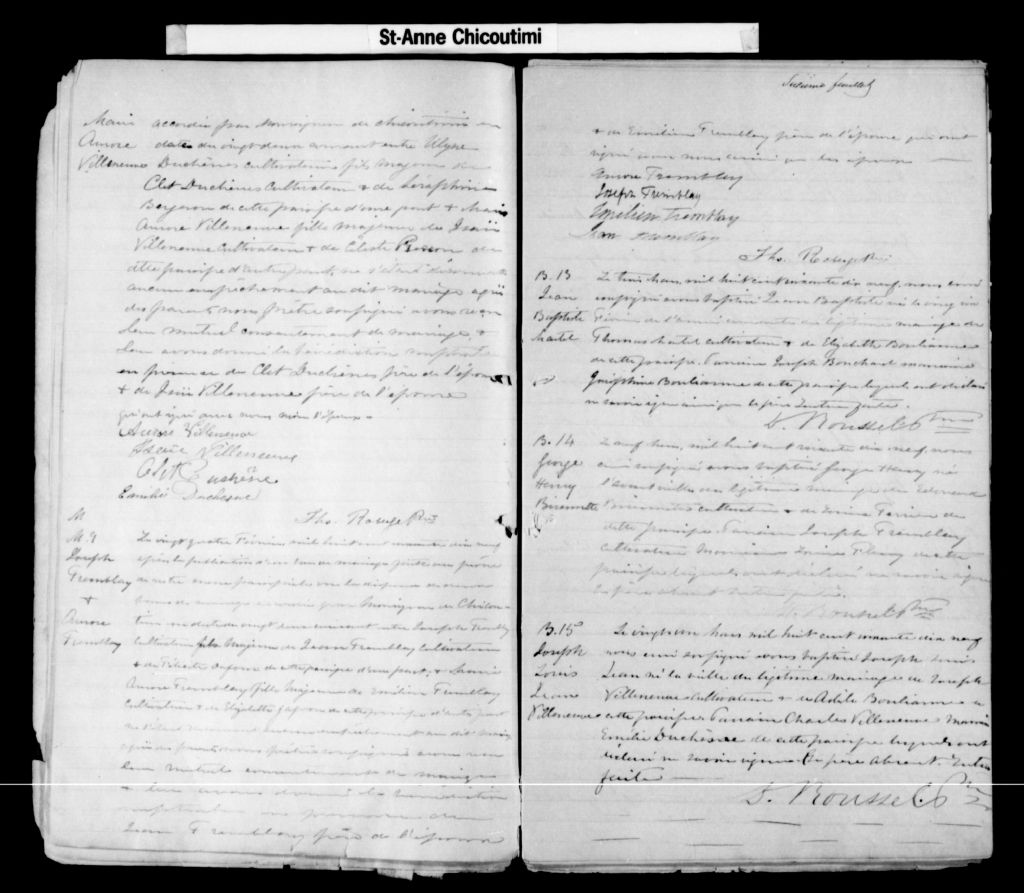 St-Anne Chicoutimi
Marie accordée par Monseigneur de Chicoutimi en
Aurore date du vingt deux courant entre Ulysse
Villeneuve Duchènes cultivateur fils majeur de
Clet Duchènes cultivateur & de Séraphine
Bergeron de cette paroisse d'une part & Marie
Aurore Villeneuve fille majeure de Isaïe
Villeneuve cultivateur & de Céleste
cette paroisse d'autre part, ne s'étant découvert
aucun empêchement au dit mariage après
nous prêtre soussigné avons reçu
leur mutuel consentement de mariage &
leur avons donné la bénédiction nuptiale
en présence de Clet Duchènes père de l'époux
& de Isaïe Villeneuve père de l'épouse
qui ont signé avec nous l'époux.
Aurore Villeneuve
Isaïe Villeneuve
Duchêne
Duchesne
Ths. Roberge Ptre
M
Le vingt quatre Février mil huit cent soixante dix neuf
Joseph après la publication d'un ban de mariage faite au prône
Tremblay de notre messe paroissiale vu la dispense de deux
& bans de mariage accordée par Monseigneur de Chicou-
Aurore timi en date du vingt deux courant entre Joseph Tremblay
Tremblay cultivateur fils majeur de Jean Tremblay cultivateur
& de de cette paroisse d'une part, & Marie
Aurore Tremblay fille majeure de Emilien Tremblay
cultivateur & de Elizabeth de cette paroisse d'autre part
ne s'étant découvert aucun empêchement au dit mariage
nous prêtre soussigné avons reçu
leur mutuel consentement de mariage
& leur avons donné la bénédiction
nuptiale en présence de
Jean Tremblay père de l'époux
feuillet
& de Emilien Tremblay père de l'épouse qui ont
signé avec nous ainsi que les époux
Aurore Tremblay
Joseph Tremblay
Emilien Tremblay
Jean Tremblay
Ths. Roberge Ptre
B. 13 Le trois Mars, mil huit cent soixante dix neuf, nous curé
Jean soussigné avons baptisé Jean Baptiste né le cinq
Baptiste Février de l'année courante du légitime mariage de
Thomas cultivateur & de Elizabeth Boulianne
de cette paroisse. Parrain Joseph Bouchard marraine
Joséphine Boulianne de cette paroisse lesquels ont déclaré
ne savoir signer ainsi que le père Lecture faite.
D. Roussel Ptre
B. 14 Le neuf Mars, mil huit cent soixante dix neuf, nous
George curé soussigné avons baptisé George Henry né
Henry l'avant veille du légitime mariage de Edouard
cultivateur & de
cette paroisse. Parrain Joseph Tremblay
cultivateur Marraine de cette
paroisse lesquels ont déclaré ne savoir signer
le père absent Lecture faite.
D. Roussel Ptre
B. 15 Le vingt un Mars mil huit cent soixante dix neuf
Joseph nous curé soussigné avons baptisé Joseph Louis
Louis Jean né la veille du légitime mariage de Joseph
Jean Villeneuve cultivateur & de Adèle Boulianne de
Villeneuve cette paroisse Parrain Charles Villeneuve Marraine
Emilie Duchènes de cette paroisse lesquels ont
déclaré ne savoir signer. Le père absent. Lecture
faite
D. Roussel Ptre